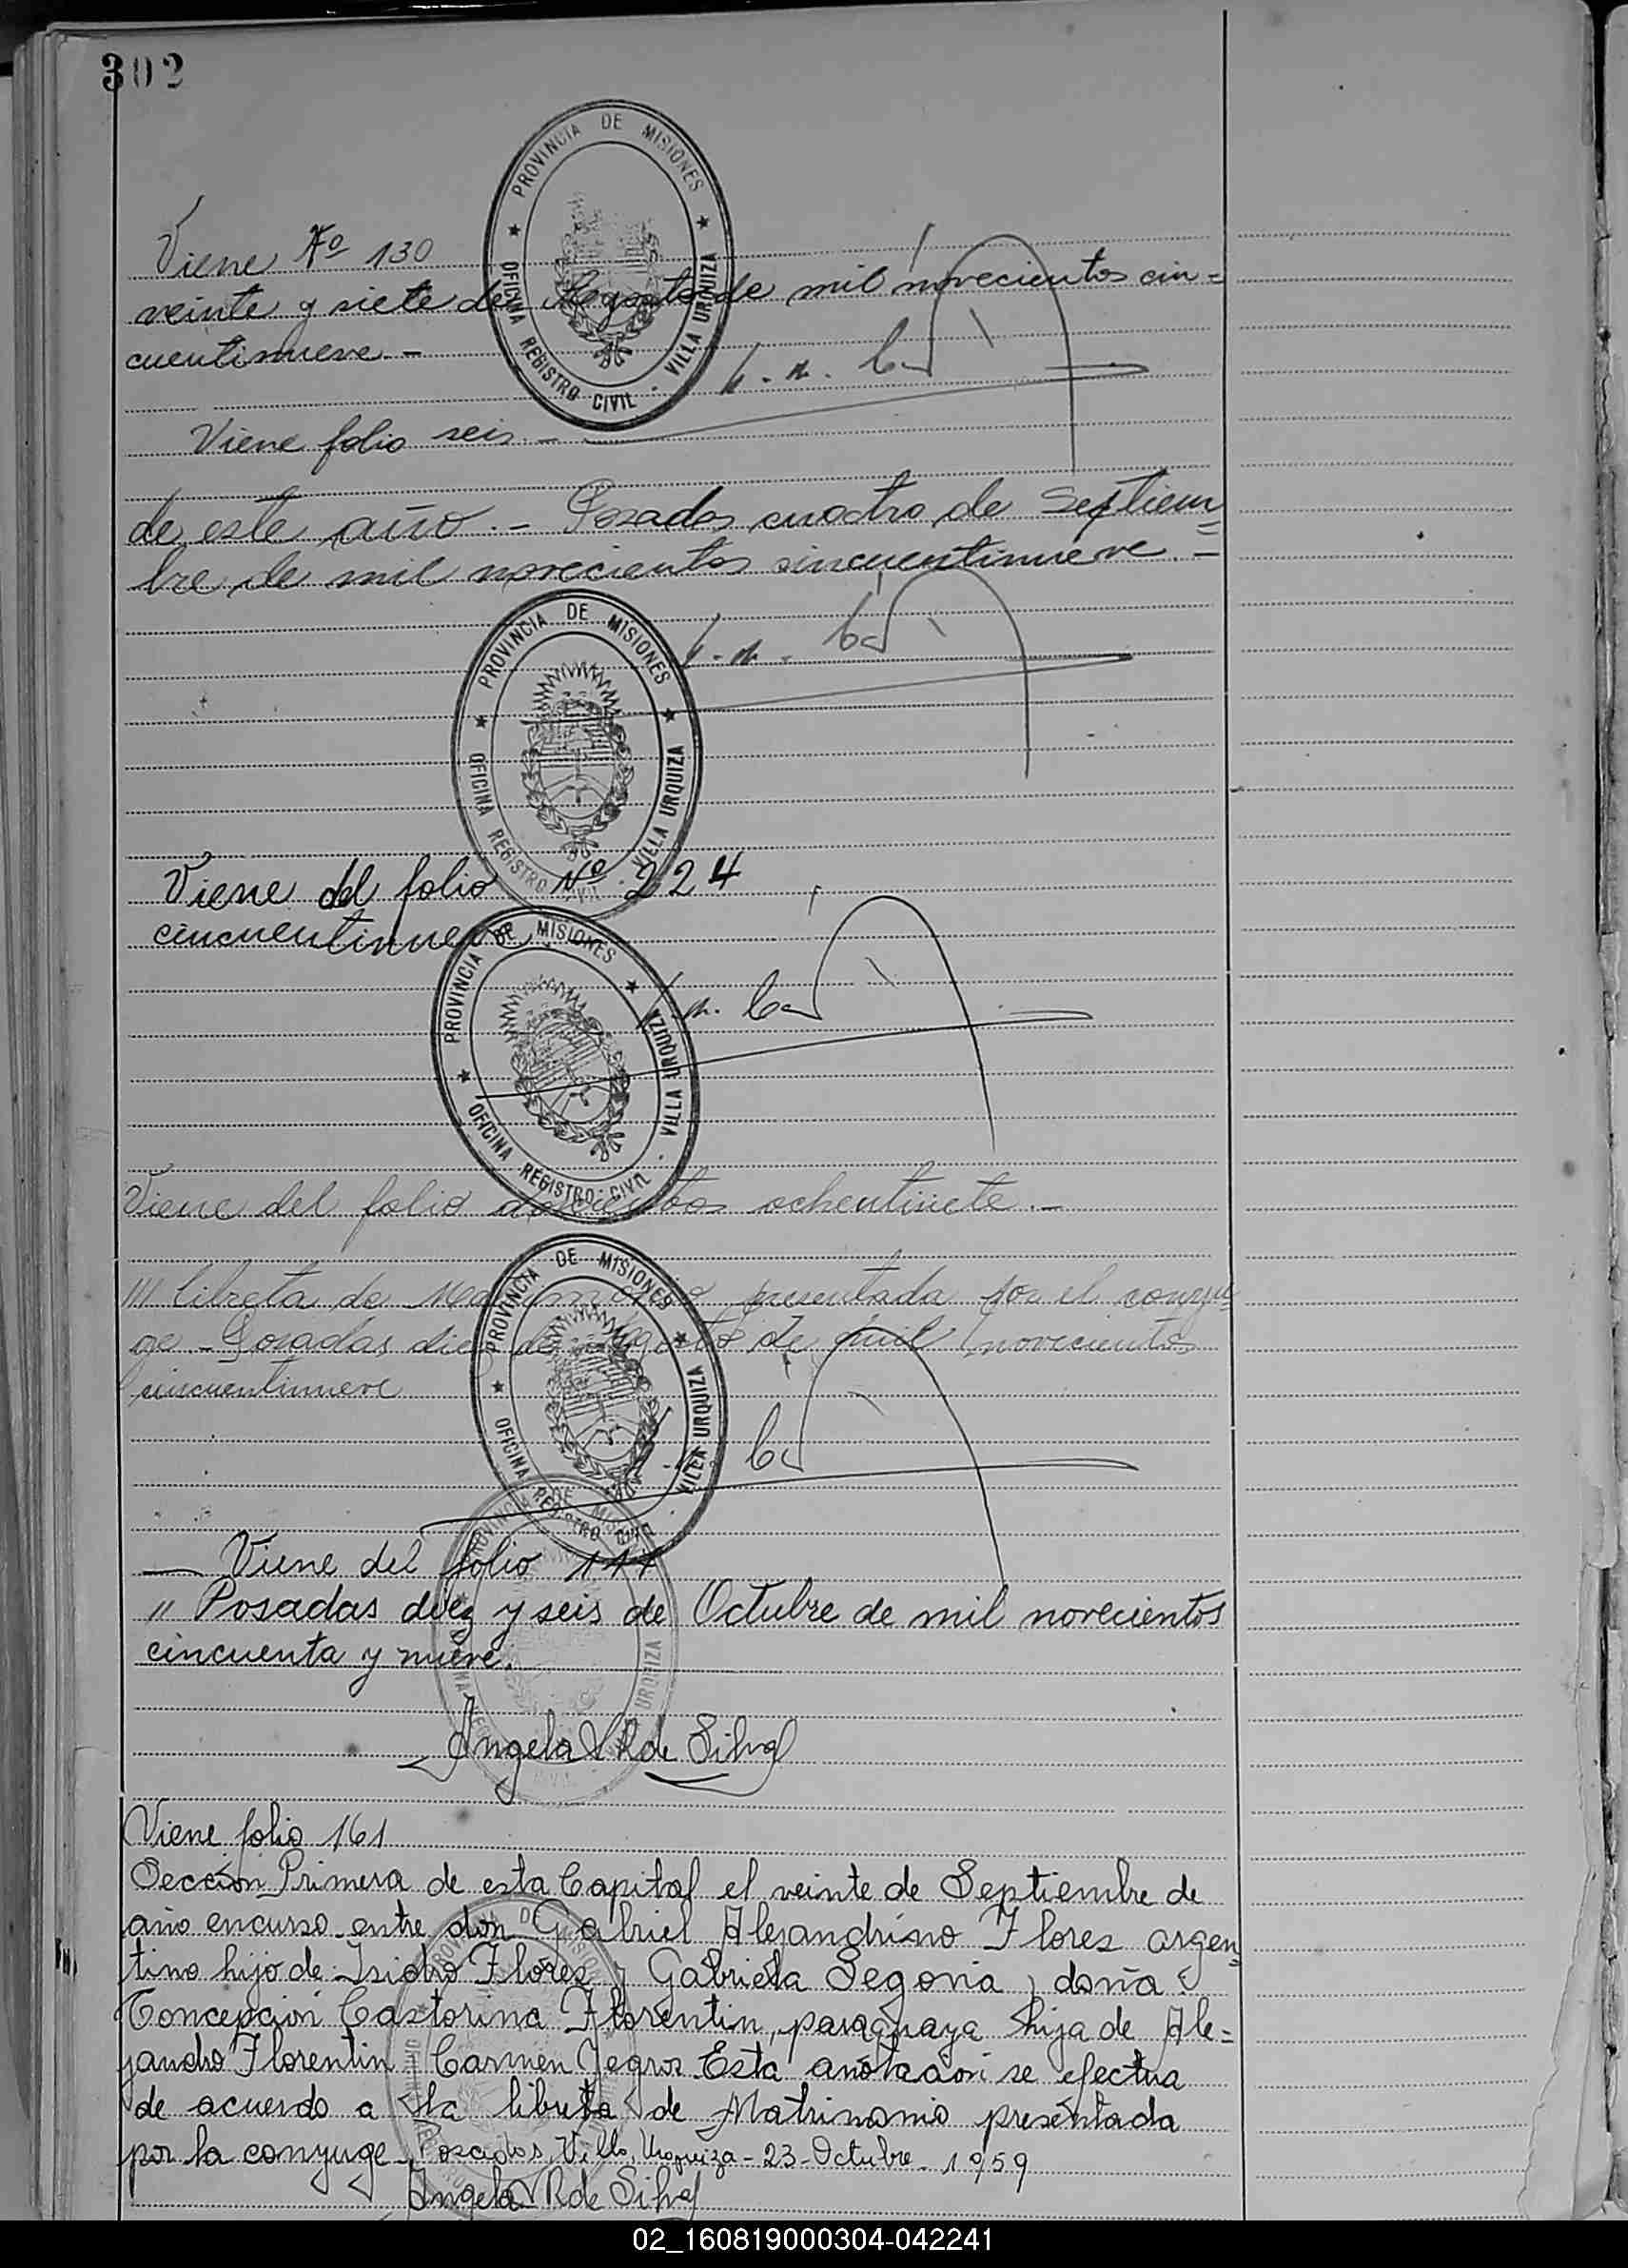 302
PROVINCIA DE MISIONES
OFICINA REGISTRO CIVIL - VILLA URQUIZA
Viene Fº 130
veinte y siete de Agosto de mil novecientos cin=
cuentinueve. -
Viene folio seis. -
de este año. - Posadas cuatro de Septiem=
bre de mil novecientos sincuentinueve. -
PROVINCIA DE MISIONES
OFICINA REGISTRO CIVIL - VILLA URQUIZA
Viene del folio Nº 224
cincuentinueve
PROVINCIA DE MISIONES
OFICINA REGISTRO CIVIL - VILLA URQUIZA
Viene del folio doscientos ochentisiete. -
PROVINCIA DE MISIONES
OFICINA REGISTRO CIVIL - VILLA URQUIZA
/// libreta de Matrimonio presentada por el conyu=
ge - Posadas diez de Agosto de mil novecientos
cincuentinueve
— Viene del folio
" Posadas diez y seis de Octubre de mil novecientos
cincuenta y nueve.
Angela R de Silva
Viene folio 161
Sección Primera de esta Capital el veinte de Septiembre de
año encurso entre don Gabriel Alejandrino Flores argen=
tino hijo de Isidro Flores y Gabriela Segovia y doña
Concepción Castorina Florentin, paraguaya hija de Ale=
jandro Florentin Carmen Yegros Esta anotación se efectua
de acuerdo a la libreta de Matrimonio presentada
por la conyuge Posadas, Villa Urquiza - 23 - Octubre - 1959
Angela R de Silva
02_160819000304-042241